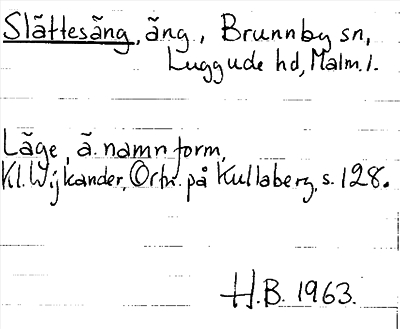 Slättesäng, äng, Brunnby sn,
Luggude hd, Malm.l.
Läge, ä. namnform,
Kl. Wijkander, Ortn. på Kullaberg, s. 128.
H.B. 1963.